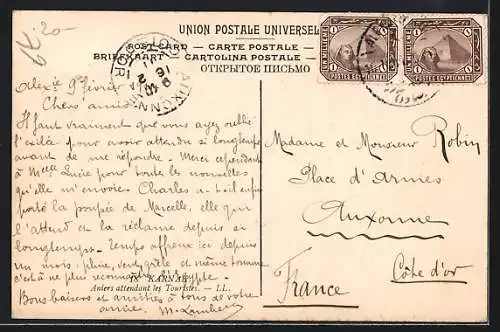 UNION POSTALE UNIVERSELLE
POST-CARD — CARTE POSTALE
BRIEFKAART — CARTOLINA POSTALE
ОТКРЫТОЕ ПИСЬМО
1 UN MILLIEME 1
POSTES EGYPTIENNES
1 UN MILLIEME 1
POSTES EGYPTIENNES
AUXONNE
Alexie 9 février
Chers amis
Il faut vraiment que vous ayez oublié
pour avoir attendu si longtemps
avant de me répondre. Merci cependant
à Melle Lucie pour toutes les nouvelles
qu'elle m'envoie. Charles a-t-il enfin
porté la poupée de Marcelle, elle qui
l'attend et la réclame depuis si
longtemps. Temps affreux ici depuis
un mois, pluie, vent, grêle et même tonnerre
c'est à ne plus reconnaître l'Egypte.
Bons baisers et amitiés à tous de votre
amie.
Madame et Monsieur Robin
Place d'Armes
Auxonne
Côte d'or
France
18 KARNAK
Aniers attendant les Touristes. — LL.